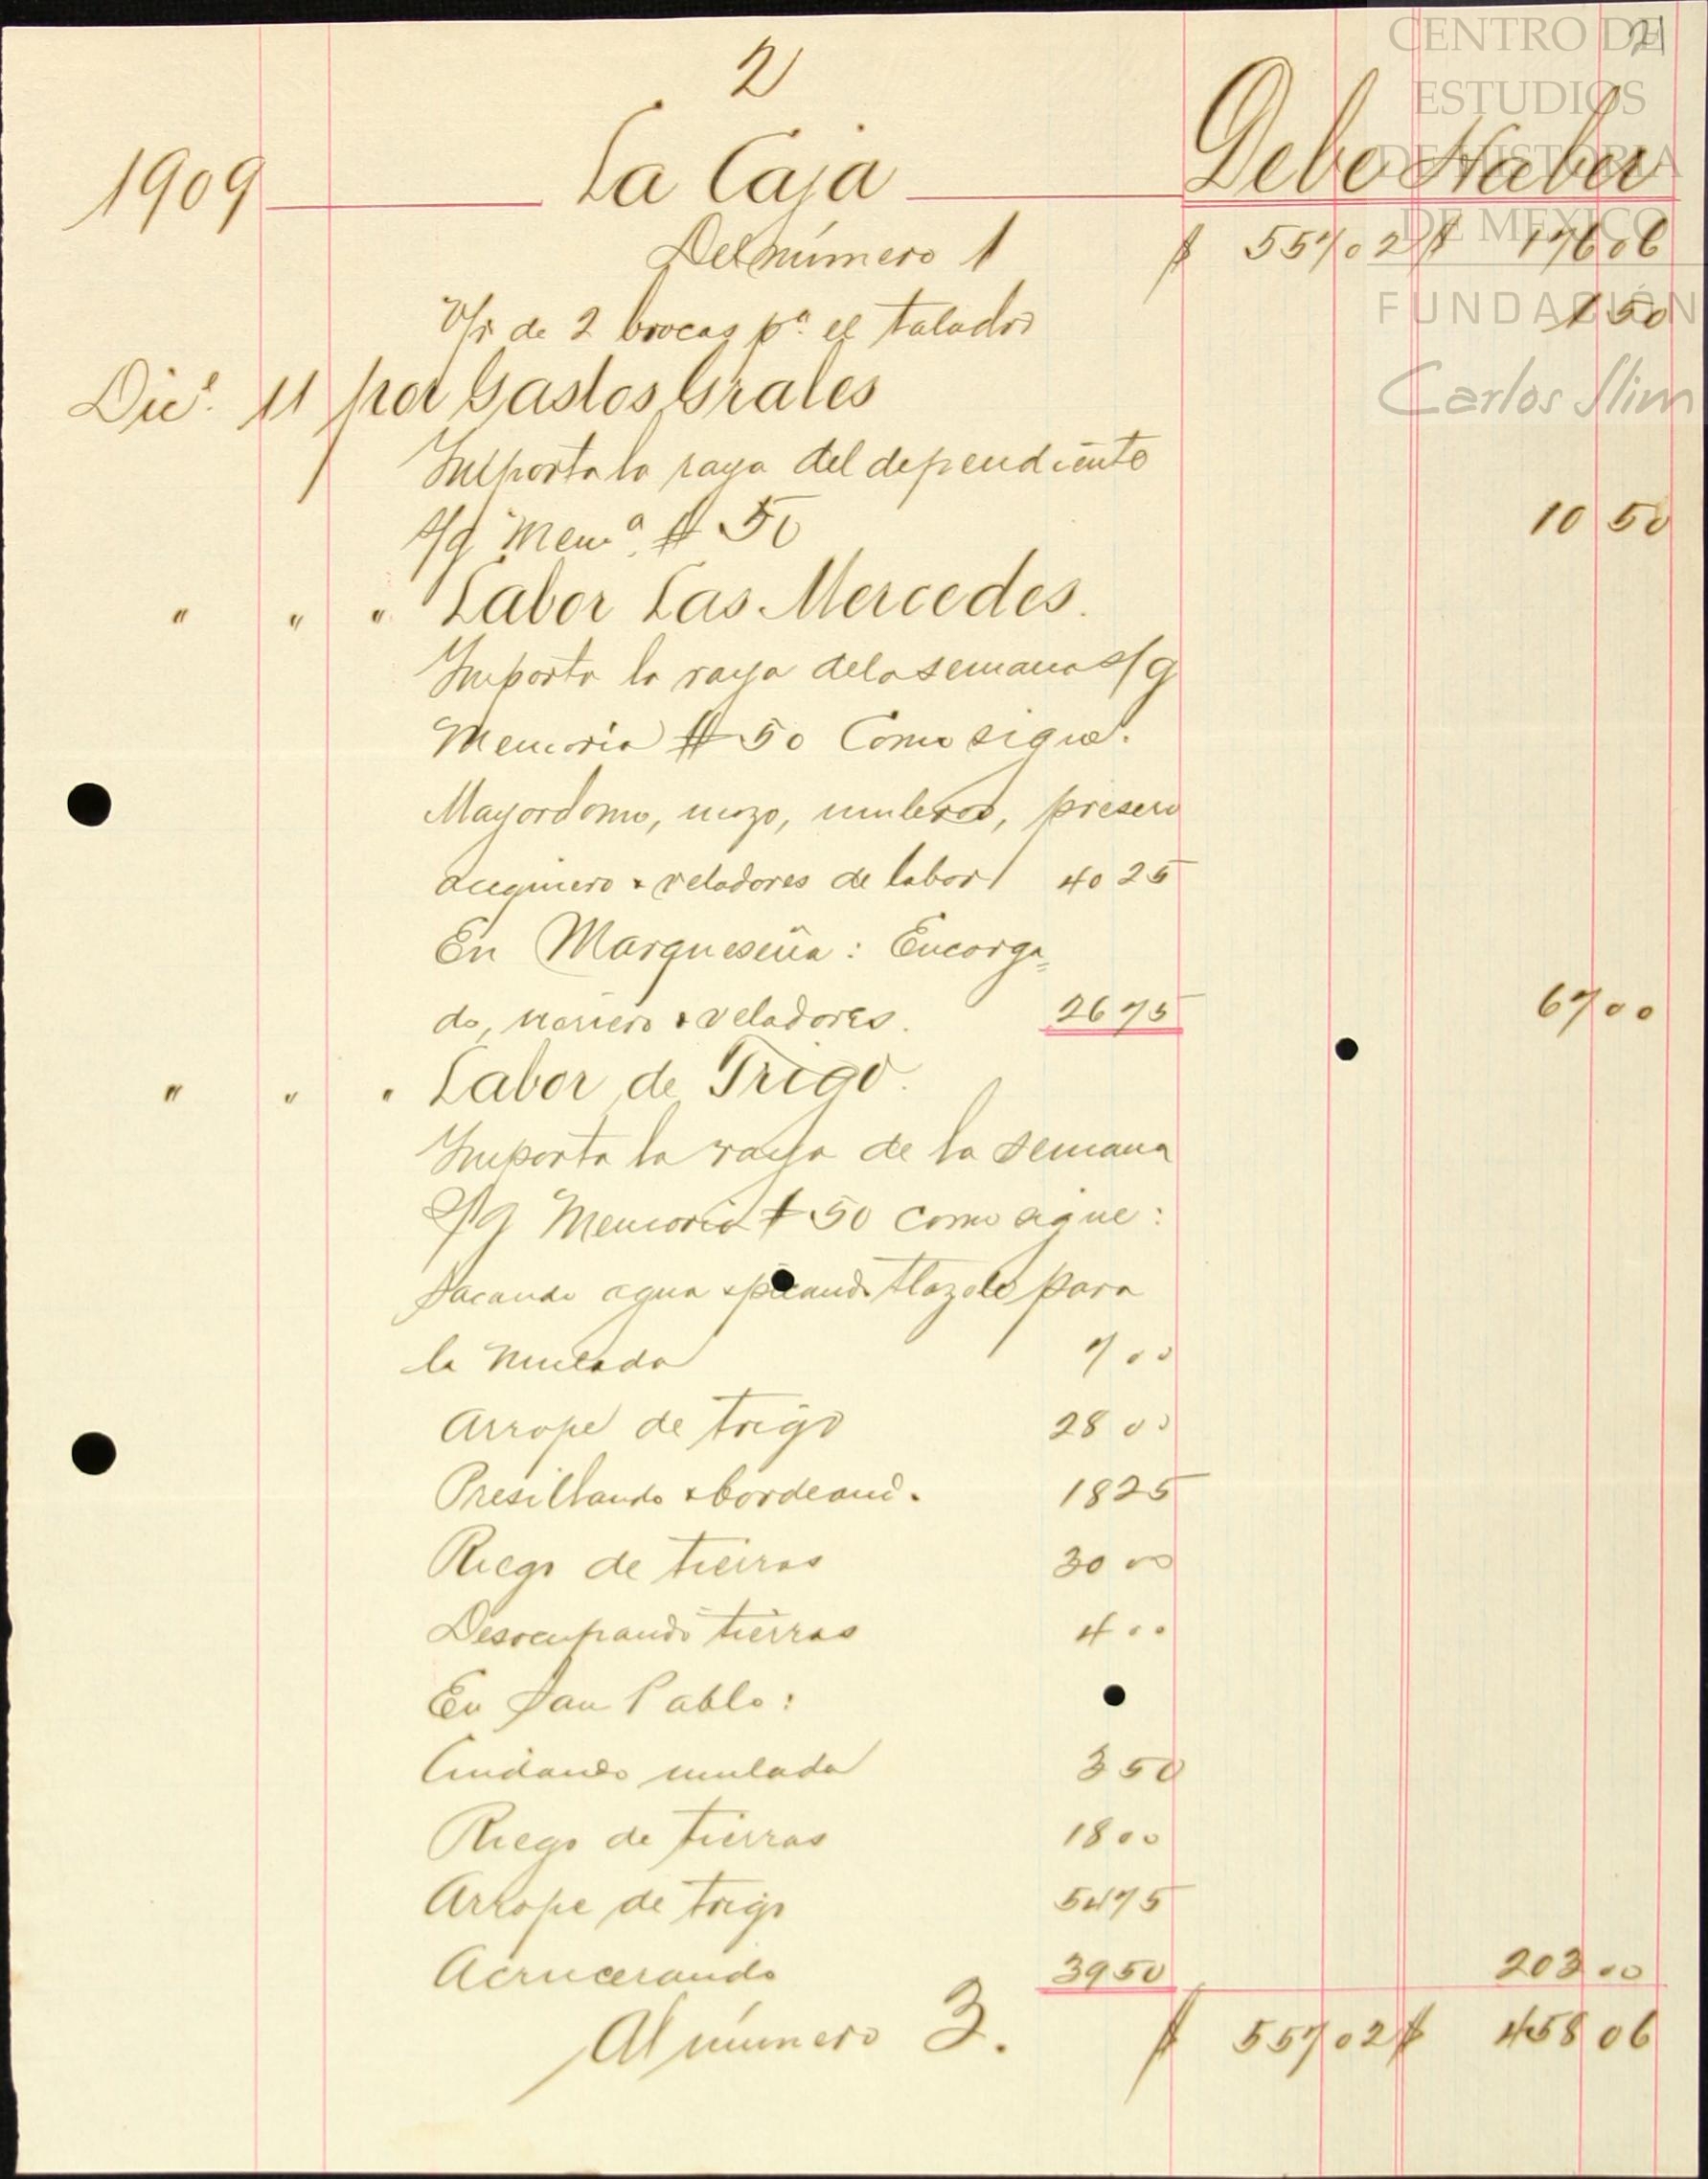 2
21
CENTRO DE
ESTUDIOS
DE HISTORIA
DE MEXICO
FUNDACIÓN
Carlos Slim
1909 La Caja Debe Haber
Del número 1 $ 557 02 $ 176 06
V/r de 2 brocas pª el taladro 1 50
Dice. 11 por Gastos Grales
Importa la raya del dependiente
s/g Memª. # 50 10 50
" " " Labor Las Mercedes.
Importa la raya de la semana s/g
Memoria # 50 Como sigue.
Mayordomo, mozo, muleros, presero
& veladores de labor 40 25
En Marqueseña: Encarga=
do, noriero & veladores. 26 75 67 00
" " " Labor de Trigo.
Importa la raya de la semana
s/g Memoria # 50 como sigue:
Sacando agua & picando tlazole para
la mulada 7 00
Arrope de trigo 28 00
Presillando & bordeando. 18 25
Riego de tierras 30 00
Desocupando tierras 4 00
En San Pablo:
Cuidando mulada 3 50
Riego de tierras 18 00
Arrope de trigo 54 75
Acrucerando 39 50 203 00
Al número 3. $ 557 02 $ 458 06